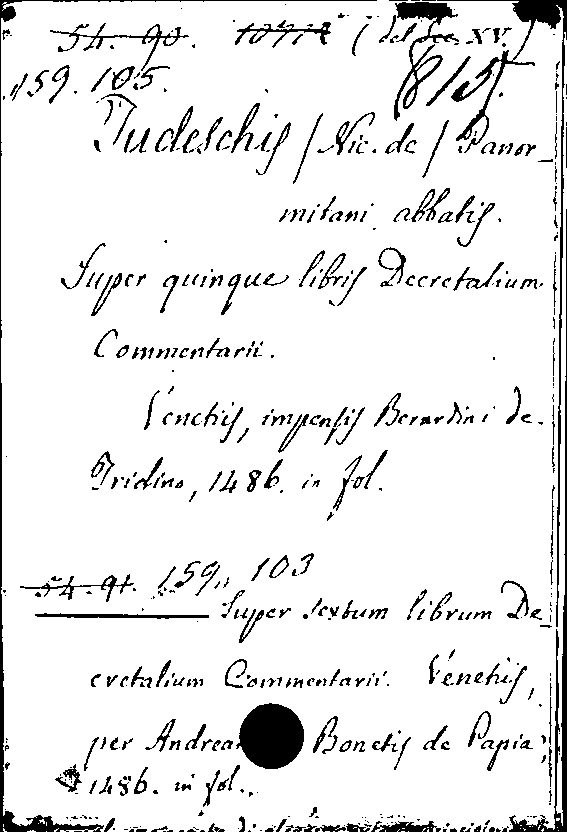 54. 90. (del Sec. XV.)
159. 105. (815).
Tudeschis / Nic. de / Panor-
mitani abbatis.
Super quinque libris Decretalium
Commentarii.
Venetiis, impensis Bernardini de
Tridino, 1486. in fol.
54. 91. 159. 103
Super sextum librum De-
cretalium Commentarii. Venetiis,
per Andream Bonetis de Papia,
1486. in fol.